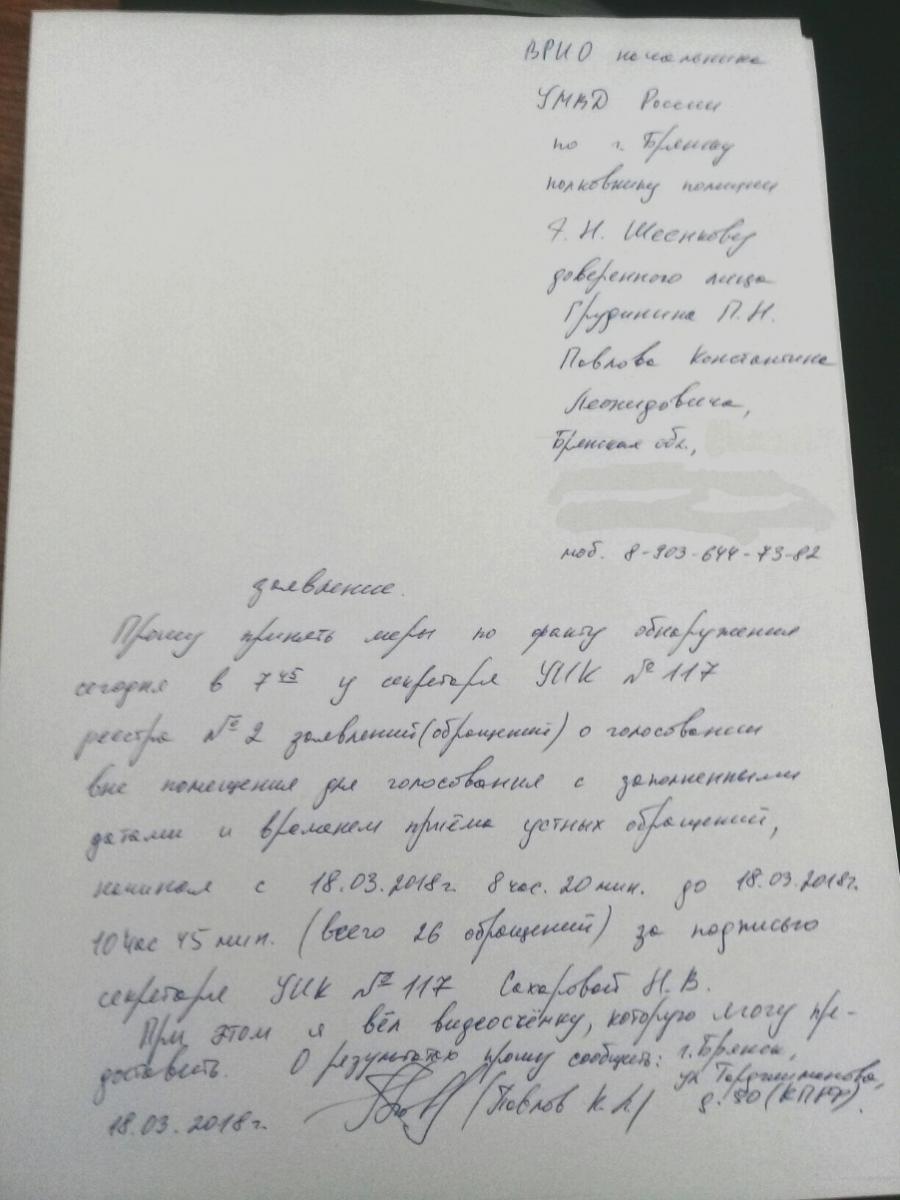 ВРИО начальника
УМВД России
по г. Брянску
полковнику полиции
А. Н. Шеенкову
доверенного лица
Грудинина П.Н.
Павлова Константина
Леонидовича,
Брянская обл.,
моб. 8-903-644-73-82
заявление.
Прошу принять меры по факту обнаружения
сегодня в 7 45 у секретаря УИК № 117
реестра № 2 заявлений (обращений) о голосовании
вне помещения для голосования с заполненными
датами и временем приёма устных обращений,
начиная с 18.03.2018г. 8 час. 20 мин. до 18.03.2018г.
10 час 45 мин. (всего 26 обращений) за подписью
секретаря УИК № 117 Сахаровой Н.В.
При этом я вёл видеосъёмку, которую могу пре-
доставить. О результатах прошу сообщить: г. Брянск,
ул
18.03.2018г. /Павлов К.Л./ (КПРФ).